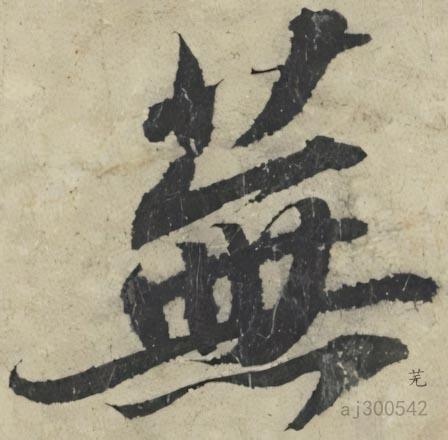 蕪
芜
aj300542